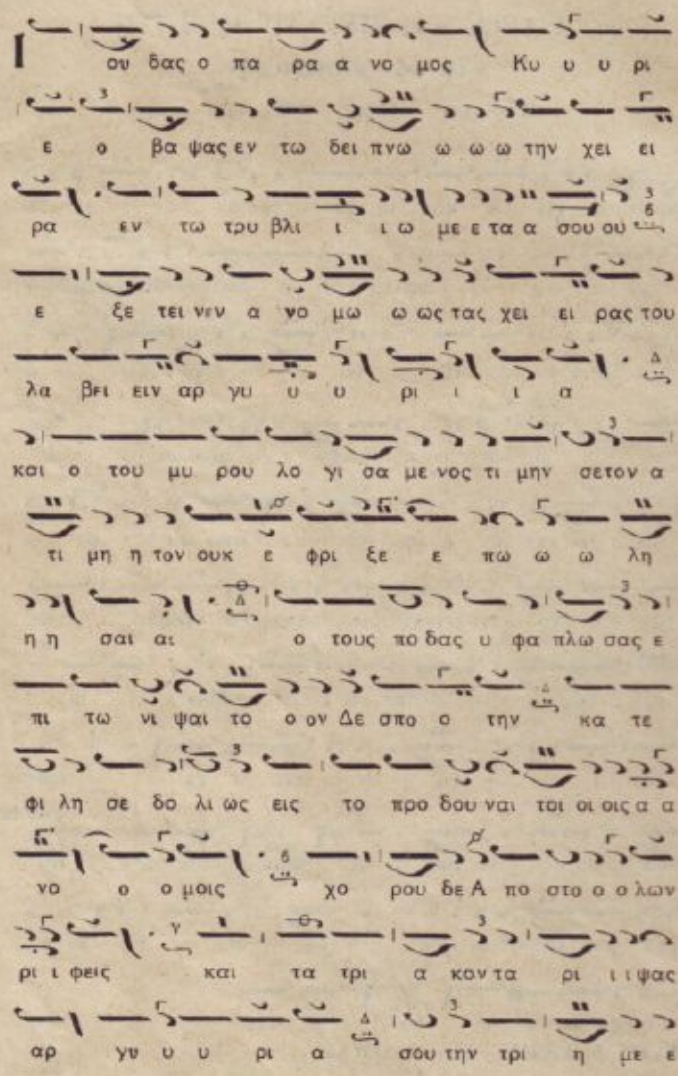 Ι ου δας ο πα ρα α νο μος Κυ υ υ ρι
ε ο βα ψας εν τω δει πνω ω ω ω την χει ει
ρα εν τω τρυ βλι ι ι ω με ε τα α σου ου
ε ξε τει νεν α νο μω ω ως τας χει ει ρας του
λα βει ειν αρ γυ υ υ ρι ι ι α
και ο του μυ ρου λο γι σα με νος τι μην σε τον α
τι μη η τον ουκ ε φρι ξε ε πω ω ω λη
η η σαι αι ο τους πο δας υ φα πλω σας ε
πι τω νι ψαι το ο ον Δε σπο ο την κα τε
φι λη σε δο λι ως εις το προ δου ναι τοι οι οις α α
νο ο ο μοις χο ρου δε Α πο στο ο ο λων
ρι ι φεις και τα τρι α κον τα ρι ι ι ψας
αρ γυ υ υ ρι α σου την τρι η με ε